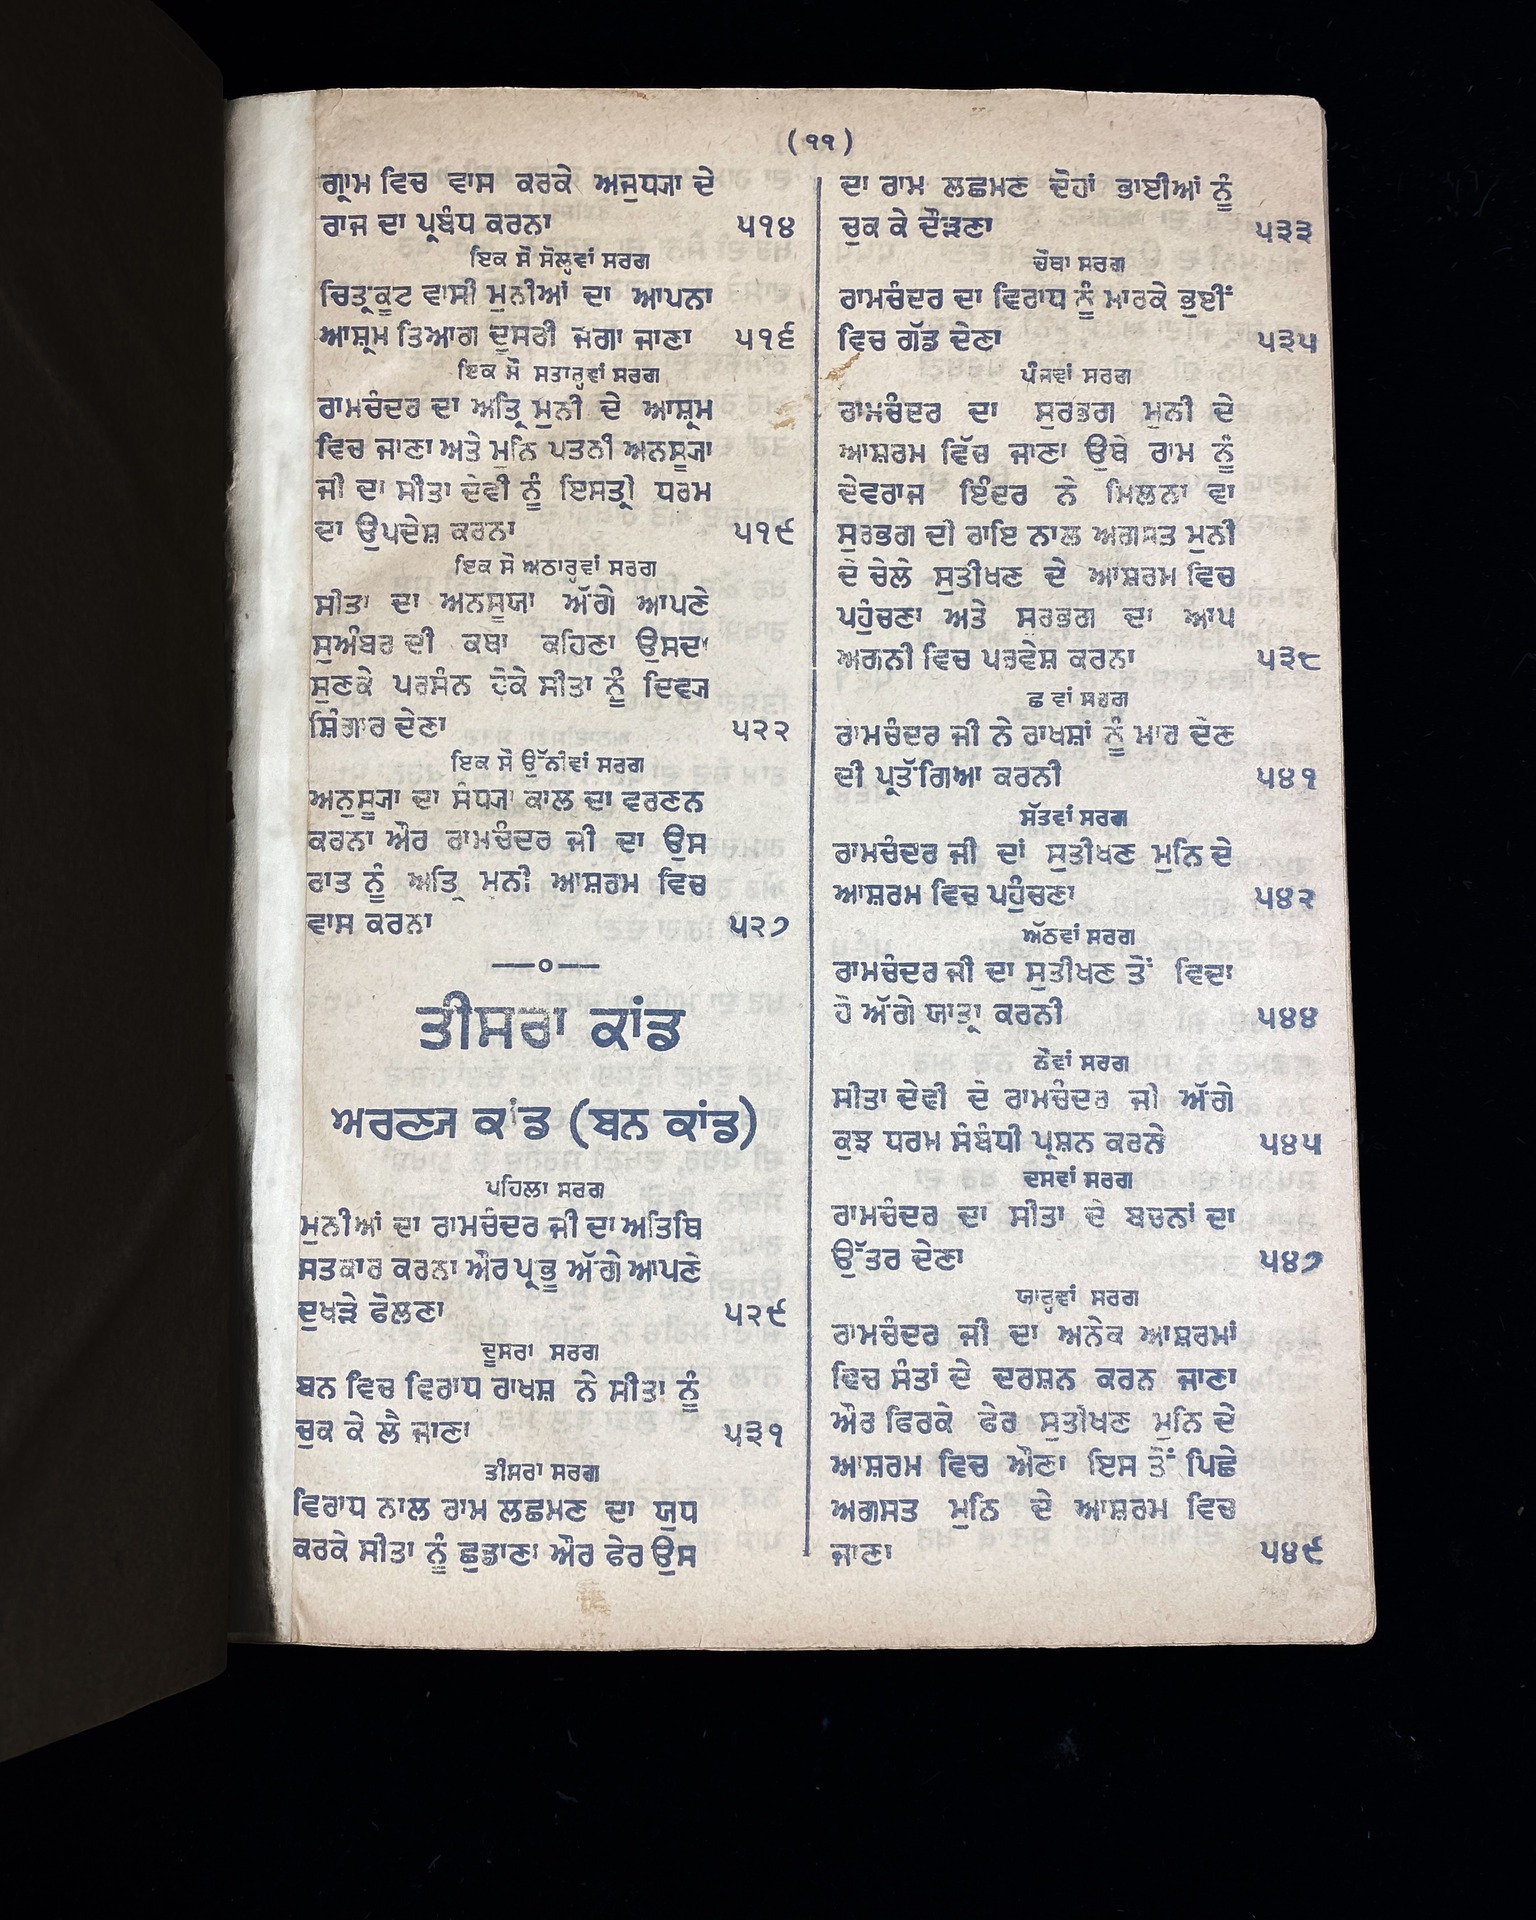 (੧੧)
ਗ੍ਰਾਮ ਵਿਚ ਵਾਸ ਕਰਕੇ ਅਜੁਧਯਾ ਦੇ
ਰਾਜ ਦਾ ਪ੍ਰਬੰਧ ਕਰਨਾ ੫੧੪
ਇਕ ਸੌ ਸੋਲ੍ਹਵਾਂ ਸਰਗ
ਚਿਤ੍ਰਕੂਟ ਵਾਸੀ ਮੁਨੀਆਂ ਦਾ ਆਪਨਾ
ਆਸ਼੍ਰਮ ਤਿਆਗ ਦੂਸਰੀ ਜਗਾ ਜਾਣਾ ੫੧੬
ਇਕ ਸੌ ਸਤਾਰ੍ਹਵਾਂ ਸਰਗ
ਰਾਮਚੰਦਰ ਦਾ ਅਤ੍ਰਿ ਮੁਨੀ ਦੇ ਆਸ਼੍ਰਮ
ਵਿਚ ਜਾਣਾ ਅਤੇ ਮੁਨਿ ਪਤਨੀ ਅਨਸੂਯਾ
ਜੀ ਦਾ ਸੀਤਾ ਦੇਵੀ ਨੂੰ ਇਸਤ੍ਰੀ ਧਰਮ
ਦਾ ਉਪਦੇਸ਼ ਕਰਨਾ ੫੧੯
ਇਕ ਸੌ ਅਠਾਰ੍ਹਵਾਂ ਸਰਗ
ਸੀਤਾ ਦਾ ਅਨਸੂਯਾ ਅੱਗੇ ਆਪਣੇ
ਸੁਅੰਬਰ ਦੀ ਕਥਾ ਕਹਿਣਾ ਉਸਦਾ
ਸੁਣਕੇ ਪਰਸੰਨ ਹੋਕੇ ਸੀਤਾ ਨੂੰ ਦਿਵਯ
ਸ਼ਿੰਗਾਰ ਦੇਣਾ ੫੨੨
ਇਕ ਸੌ ਉੱਨੀਵਾਂ ਸਰਗ
ਅਨੁਸੂਯਾ ਦਾ ਸੰਧਯਾ ਕਾਲ ਦਾ ਵਰਣਨ
ਕਰਨਾ ਔਰ ਰਾਮਚੰਦਰ ਜੀ ਦਾ ਉਸ
ਰਾਤ ਨੂੰ ਅਤ੍ਰਿ ਮੁਨੀ ਆਸ਼ਰਮ ਵਿਚ
ਵਾਸ ਕਰਨਾ ੫੨੭
ਤੀਸਰਾ ਕਾਂਡ
ਅਰਣਯ ਕਾਂਡ (ਬਨ ਕਾਂਡ)
ਪਹਿਲਾ ਸਰਗ
ਮੁਨੀਆਂ ਦਾ ਰਾਮਚੰਦਰ ਜੀ ਦਾ ਅਤਿਥਿ
ਸਤਕਾਰ ਕਰਨਾ ਔਰ ਪ੍ਰਭੂ ਅੱਗੇ ਆਪਣੇ
ਦੁਖੜੇ ਫੋਲਣਾ ੫੨੯
ਦੂਸਰਾ ਸਰਗ
ਬਨ ਵਿਚ ਵਿਰਾਧ ਰਾਖਸ਼ ਨੇ ਸੀਤਾ ਨੂੰ
ਚੁਕ ਕੇ ਲੈ ਜਾਣਾ ੫੩੧
ਤੀਸਰਾ ਸਰਗ
ਵਿਰਾਧ ਨਾਲ ਰਾਮ ਲਛਮਣ ਦਾ ਯੁਧ
ਕਰਕੇ ਸੀਤਾ ਨੂੰ ਛੁਡਾਣਾ ਔਰ ਫੇਰ ਉਸ
ਦਾ ਰਾਮ ਲਛਮਣ ਦੋਹਾਂ ਭਾਈਆਂ ਨੂੰ
ਚੁਕ ਕੇ ਦੌੜਣਾ ੫੩੩
ਚੌਥਾ ਸਰਗ
ਰਾਮਚੰਦਰ ਦਾ ਵਿਰਾਧ ਨੂੰ ਮਾਰਕੇ ਭੁਈਂ
ਵਿਚ ਗੱਡ ਦੇਣਾ ੫੩੫
ਪੰਜਵਾਂ ਸਰਗ
ਰਾਮਚੰਦਰ ਦਾ ਸੁਰਭਗ ਮੁਨੀ ਦੇ
ਆਸ਼ਰਮ ਵਿੱਚ ਜਾਣਾ ਉਥੇ ਰਾਮ ਨੂੰ
ਦੇਵਰਾਜ ਇੰਦਰ ਨੇ ਮਿਲਨਾ ਵਾ
ਸੁਰਭਗ ਦੀ ਰਾਇ ਨਾਲ ਅਗਸਤ ਮੁਨੀ
ਦੇ ਚੇਲੇ ਸੁਤੀਖਣ ਦੇ ਆਸ਼ਰਮ ਵਿਚ
ਪਹੁੰਚਣਾ ਅਤੇ ਸਰਭਗ ਦਾ ਆਪ
ਅਗਨੀ ਵਿਚ ਪਰਵੇਸ਼ ਕਰਨਾ ੫੩੮
ਛ ਵਾਂ ਸਰਗ
ਰਾਮਚੰਦਰ ਜੀ ਨੇ ਰਾਖਸ਼ਾਂ ਨੂੰ ਮਾਰ ਦੇਣ
ਦੀ ਪ੍ਰਤੱਗਿਆ ਕਰਨੀ ੫੪੧
ਸੱਤਵਾਂ ਸਰਗ
ਰਾਮਚੰਦਰ ਜੀ ਦਾਂ ਸੁਤੀਖਣ ਮੁਨਿ ਦੇ
ਆਸ਼ਰਮ ਵਿਚ ਪਹੁੰਚਣਾ ੫੪੨
ਅੱਠਵਾਂ ਸਰਗ
ਰਾਮਚੰਦਰ ਜੀ ਦਾ ਸੁਤੀਖਣ ਤੋਂ ਵਿਦਾ
ਹੋ ਅੱਗੇ ਯਾਤ੍ਰਾ ਕਰਨੀ ੫੪੪
ਨੌਵਾਂ ਸਰਗ
ਸੀਤਾ ਦੇਵੀ ਦੇ ਰਾਮਚੰਦਰ ਜੀ ਅੱਗੇ
ਕੁਝ ਧਰਮ ਸੰਬੰਧੀ ਪ੍ਰਸ਼ਨ ਕਰਨੇ ੫੪੫
ਦਸਵਾਂ ਸਰਗ
ਰਾਮਚੰਦਰ ਦਾ ਸੀਤਾ ਦੇ ਬਚਨਾਂ ਦਾ
ਉੱਤਰ ਦੇਣਾ ੫੪੭
ਯਾਰ੍ਹਵਾਂ ਸਰਗ
ਰਾਮਚੰਦਰ ਜੀ ਦਾ ਅਨੇਕ ਆਸ਼ਰਮਾਂ
ਵਿਚ ਸੰਤਾਂ ਦੇ ਦਰਸ਼ਨ ਕਰਨ ਜਾਣਾ
ਔਰ ਫਿਰਕੇ ਫੇਰ ਸੁਤੀਖਣ ਮੁਨਿ ਦੇ
ਆਸ਼ਰਮ ਵਿਚ ਔਣਾ ਇਸ ਤੋਂ ਪਿਛੇ
ਅਗਸਤ ਮੁਨਿ ਦੇ ਆਸ਼ਰਮ ਵਿਚ
ਜਾਣਾ ੫੪੯